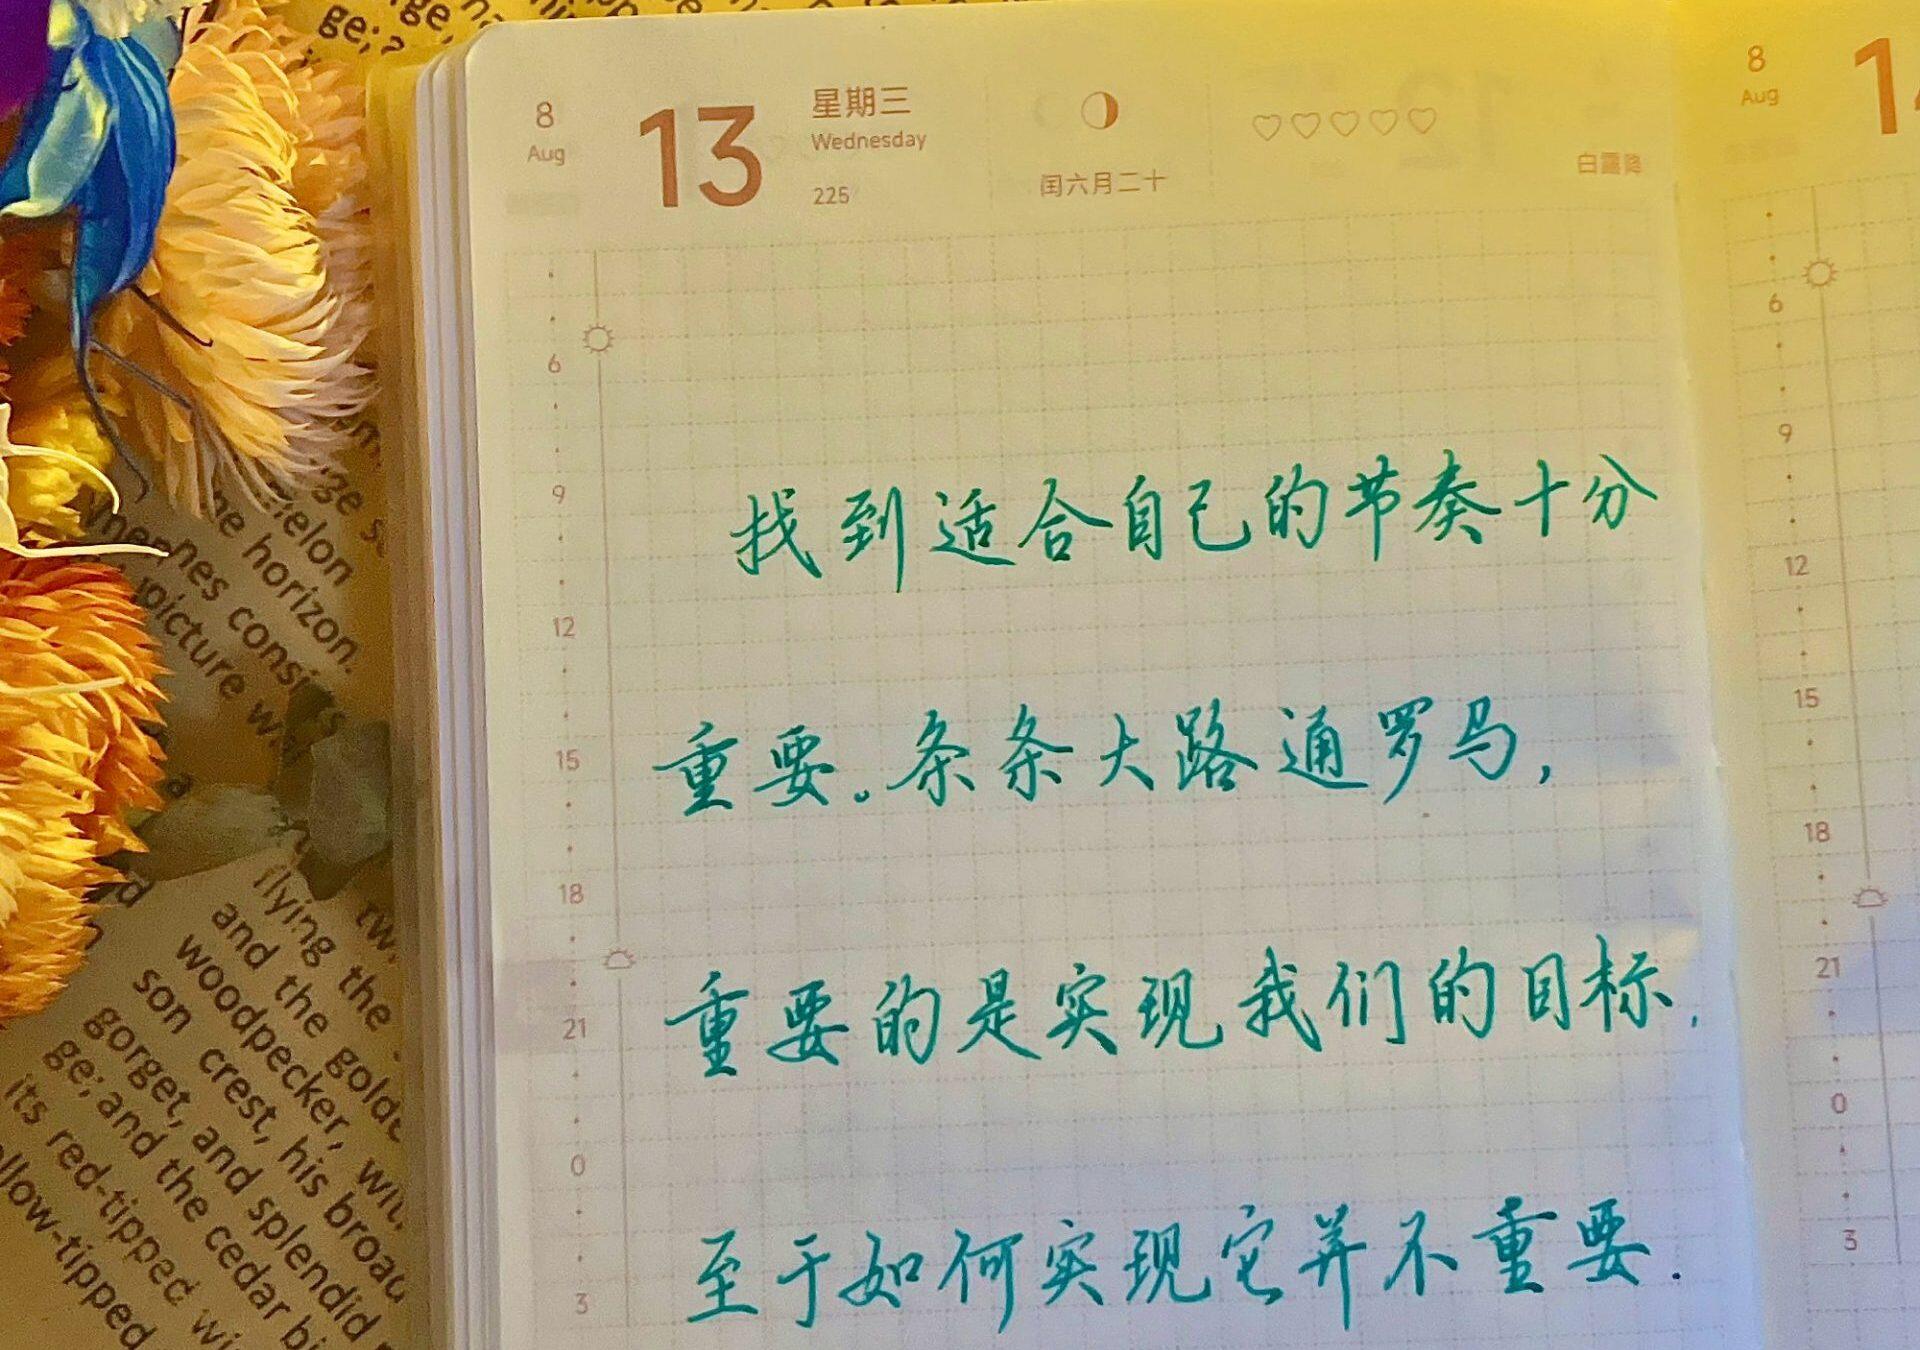 8
Aug
13
星期三
Wednesday
225
闰六月二十
白露降
6
9
12
15
18
21
0
3
找到适合自己的节奏十分
重要。条条大路通罗马,
重要的是实现我们的目标.
至于如何实现它并不重要.
8
Aug
6
9
12
15
18
21
0
3
ge;
the horizon.
nes consists
picture
flying the
and the golde
woodpecker, with
son crest, his broad
gorget, and splendid
ge; and the cedar bi
its red-tipped wi
llow-tipped